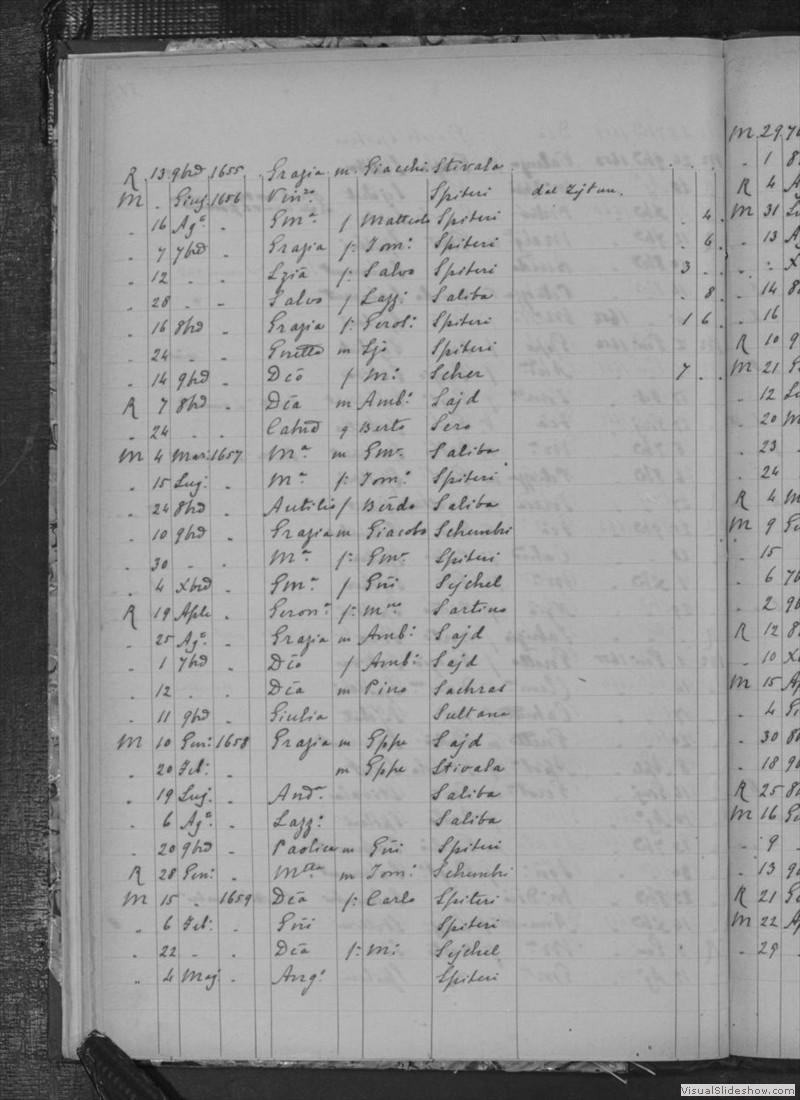 R 13 9brẽ 1655 Grazia m Giacchi Stivala
M . Giug 1656 Vinza Spiteri del Zejtun.
. 16 Agº . Gmª f Matteolo Spiteri . 4 .
. 7 7brẽ . Grazia f: Tomº Spiteri . 6 .
. 12 . . Lzia f: Salvo Spiteri 3 . .
. 28 . . Salvo f Lazzº Saliba . 8 .
. 16 8brẽ . Grazia f: Gerolº Spiteri 1 6 .
. 24 . . m Spiteri
. 14 9brẽ . Dẽo f Mº Scher 7 . .
R 7 8brẽ . Dẽa m Ambº Sajd
. 24 . . g Berto Sero
M 4 Mar: 1657 Mª m Gmº Saliba
. 15 Lug: . Mª f: Tomº Spiteri
. 24 8brẽ . f Bẽrdo Saliba
. 10 9brẽ . Grazia m Giacobo Schembri
. 30 . . Mª f: Gmº Spiteri
. 4 Xbrẽ . Gmª f Gñi Sejchel
R 19 Aple . Geronª f: Sartino
. 25 Agº . Grazia m Ambº Sajd
. 1 7brẽ . Dẽo f Ambº Sajd
. 12 . . Dẽa m Pino Sachras
. 11 9brẽ . Giulia Sultana
M 10 Gen: 1658 Grazia m Gppe Sajd
. 20 Feb: . m Gppe Stivala
. 19 Lug: . Andª Saliba
. 6 Agº . Lazzº Saliba
. 20 9brẽ . Paolica m Gñi Spiteri
R 28 Gen: . Mtta m Tomº Schembri
M 15 . . 1659 Dẽa f: Carlo Spiteri
. 6 Feb: . Gñi Spiteri
. 22 . . Dẽa f: M: Sejchel
. 4 Maj . Angº Spiteri
M 29 7b
. 1 8
R 4 A
M 31 L
. 13 A
. . X
. 14 8
. 16
R 10 9
M 21 G
. 12 L
. 20 M
. 23
. 24
R 4 M
M 9 G
. 15
. 6 7b
. 2 9b
R 12 8
. 10 Xb
M 15 Ap
. 4 G
. 30 8b
. 18 9b
R 25 8b
M 16 G
. 9
. 13 9b
R 21 G
M 22 Ap
. 29
VisualSlideshow.com